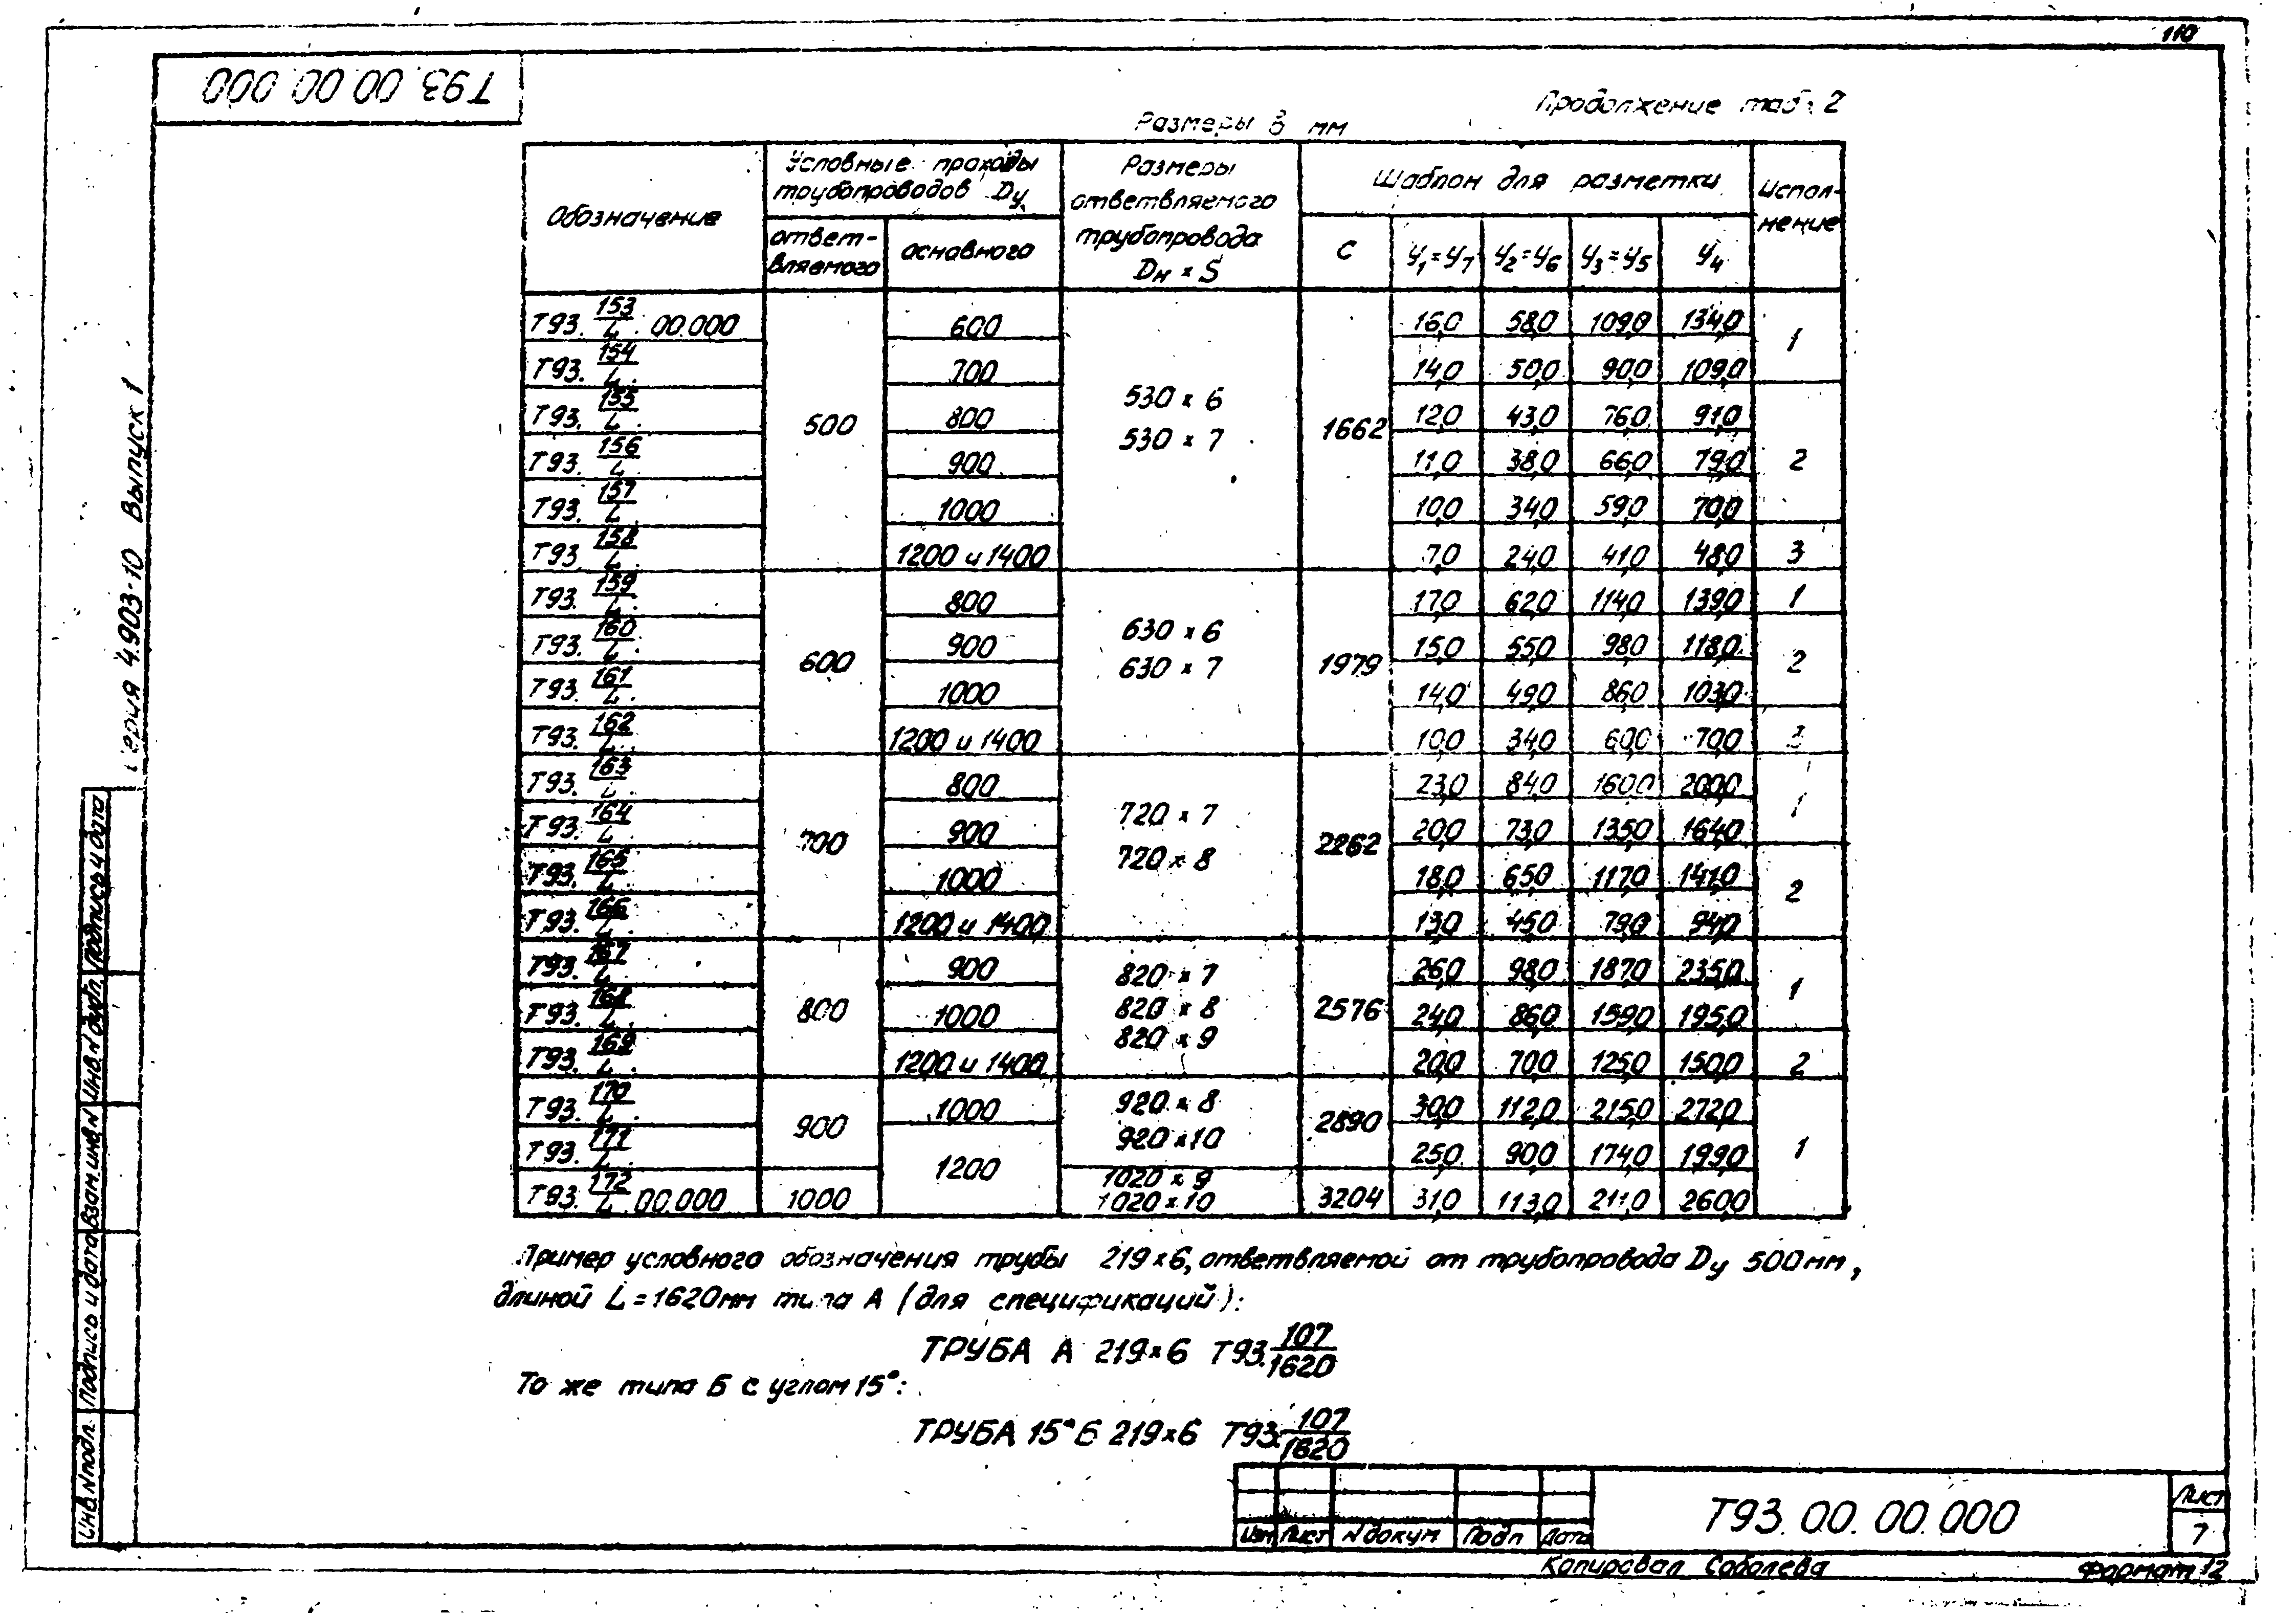 110
Т93.00.00.000
Серия 4.903-10 Выпуск 1
Продолжение таб. 2
Размеры в мм
Обозначение | Условные проходы трубопроводов Dу | Размеры ответвляемого трубопровода Dн × S | Шаблон для разметки | Исполнение
ответвляемого | основного | С | У1=У7 | У2=У6 | У3=У5 | У4
Т93. 153/L .00.000 | 500 | 600 | 530 × 6 530 × 7 | 1662 | 16,0 | 58,0 | 109,0 | 134,0 | 1
Т93. 154/L. | 700 | 14,0 | 50,0 | 90,0 | 109,0
Т93. 155/L. | 800 | 12,0 | 43,0 | 76,0 | 91,0 | 2
Т93. 156/L | 900 | 11,0 | 38,0 | 66,0 | 79,0
Т93. 157/L. | 1000 | 10,0 | 34,0 | 59,0 | 70,0
Т93. 158/L. | 1200 и 1400 | 7,0 | 24,0 | 41,0 | 48,0 | 3
Т93. 159/L. | 600 | 800 | 630 × 6 630 × 7 | 1979 | 17,0 | 62,0 | 114,0 | 139,0 | 1
Т93. 160/L. | 900 | 15,0 | 55,0 | 98,0 | 118,0 | 2
Т93. 161/L. | 1000 | 14,0 | 49,0 | 86,0 | 103,0
Т93. 162/L. | 1200 и 1400 | 10,0 | 34,0 | 60,0 | 70,0 | 3
Т93. 163/L. | 700 | 800 | 720 × 7 720 × 8 | 2262 | 23,0 | 84,0 | 160,0 | 200,0 | 1
Т93. 164/L | 900 | 20,0 | 73,0 | 135,0 | 164,0
Т93. 165/L. | 1000 | 18,0 | 65,0 | 117,0 | 141,0 | 2
Т93. 166/L. | 1200 и 1400 | 13,0 | 45,0 | 79,0 | 94,0
Т93. 167/L. | 800 | 900 | 820 × 7 820 × 8 820 × 9 | 2576 | 26,0 | 98,0 | 187,0 | 235,0 | 1
Т93. 168/L. | 1000 | 24,0 | 86,0 | 159,0 | 195,0
Т93. 169/L. | 1200 и 1400 | 20,0 | 70,0 | 125,0 | 150,0 | 2
Т93. 170/L. | 900 | 1000 | 920 × 8 920 × 10 | 2890 | 30,0 | 112,0 | 215,0 | 272,0 | 1
Т93. 171/L. | 1200 | 25,0 | 90,0 | 174,0 | 199,0
Т93. 172/L .00.000 | 1000 | 1020 × 9 1020 × 10 | 3204 | 31,0 | 113,0 | 211,0 | 260,0
Пример условного обозначения трубы 219×6, ответвляемой от трубопровода Dу 500мм,
длиной L=1620мм типа А (для спецификаций):
ТРУБА А 219×6 Т93. 107/1620
То же типа Б с углом 15°:
ТРУБА 15° Б 219×6 Т93. 107/1620
Инв.N подл. | Подпись и дата | Взам.инв.N | Инв.N дубл. | Подпись и дата
Изм | Лист | N докум | Подп | Дата
Т93.00.00.000
Лист
7
Копировал Соболева
Формат 12